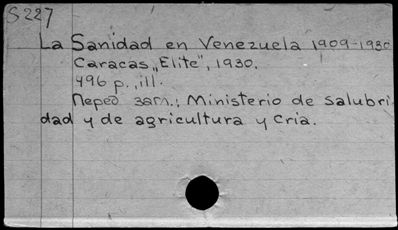 S 227
La Sanidad en Venezuela 1909-1930
Caracas „Elite", 1930.
496 p., ill.
Перед загл.: Ministerio de Salubri
dad y de agricultura y Cria.